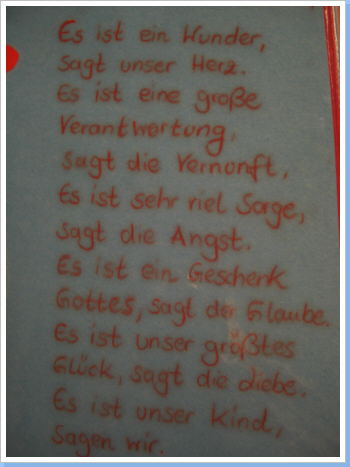 Es ist ein Wunder,
sagt unser Herz.
Es ist eine große
Verantwortung,
sagt die Vernunft,
Es ist sehr viel Sorge,
sagt die Angst.
Es ist ein Geschenk
Gottes, sagt der Glaube.
Es ist unser größtes
Glück, sagt die Liebe.
Es ist unser Kind,
sagen wir.